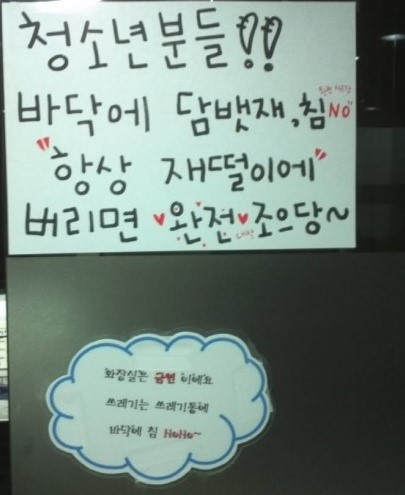 청소년분들!!
바닥에 담뱃재, 침 NO
"항상 재떨이에"
버리면 ♥완전♥ 조으당~
대박
화장실은 금연 이에요
쓰레기는 쓰레기통에
바닥에 침 NoNo~